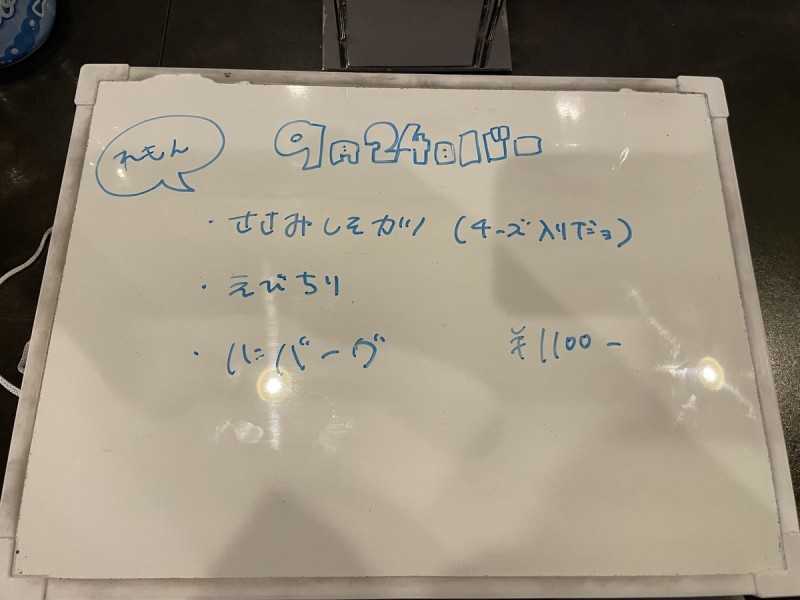 れもん
9月24日バー
・ささみしそカツ (チーズ入りデショ)
・えびちり
・ハンバーグ ¥1100-